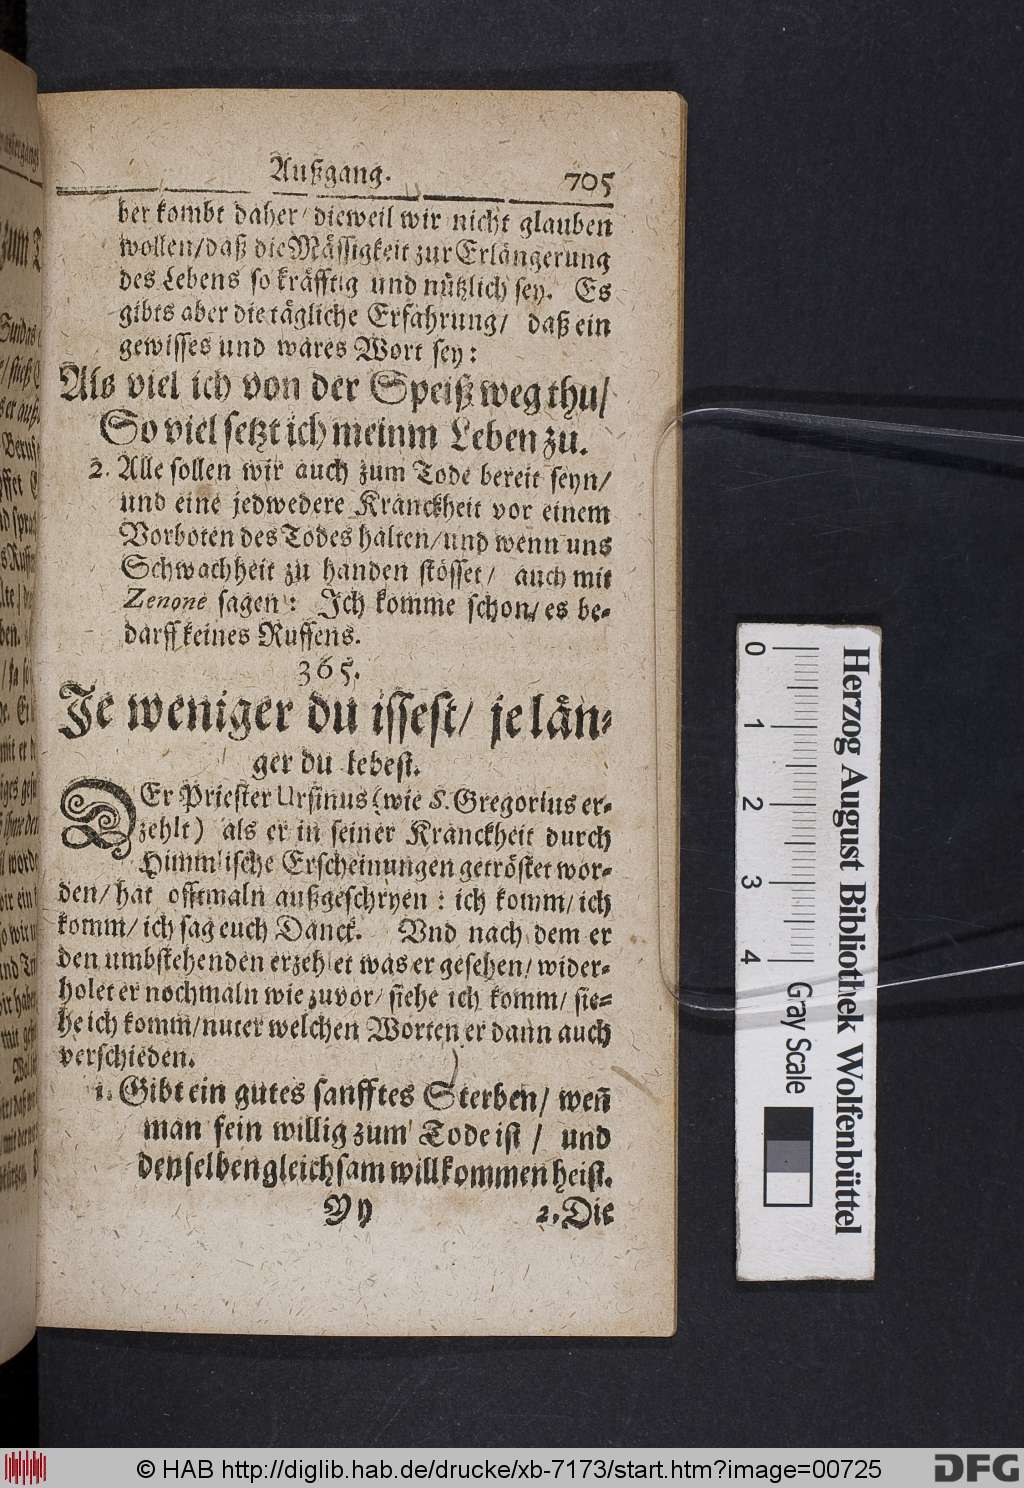 Außgang. 705
ber kombt daher/ dieweil wir nicht glauben
wollen/ daß die Mässigkeit zur Erlängerung
des Lebens so kräfftig und nützlich sey. Es
gibts aber die tägliche Erfahrung/ daß ein
gewisses und wares Wort sey:
Als viel ich von der Speiß weg thu/
So viel setzt ich meinm Leben zu.
2. Alle sollen wir auch zum Tode bereit seyn/
und eine jedwedere Kranckheit vor einem
Vorboten des Todes halten/ und wenn uns
Schwachheit zu handen stösset/ auch mit
Zenone sagen: Ich komme schon/ es be-
darff keines Ruffens.
365.
Je weniger du issest/ je län-
ger du lebest.
DEr Priester Ursinus (wie S. Gregorius er-
zehlt) als er in seiner Kranckheit durch
Himmlische Erscheinungen getröstet wor-
den/ hat offtmaln außgeschryen: ich komm/ ich
komm/ ich sag euch Danck. Vnd nach dem er
den umbstehenden erzehlet was er gesehen/ wider-
holet er nochmaln wie zuvor/ siehe ich komm/ sie-
he ich komm/ nuter welchen Worten er dann auch
verschieden.
1. Gibt ein gutes sanfftes Sterben/ weñ
man fein willig zum Tode ist/ und
denselben gleichsam willkommen heist.
Yy 2. Die
0 1 2 3 4 Gray Scale
Herzog August Bibliothek Wolfenbüttel
© HAB http://diglib.hab.de/drucke/xb-7173/start.htm?image=00725
DFG